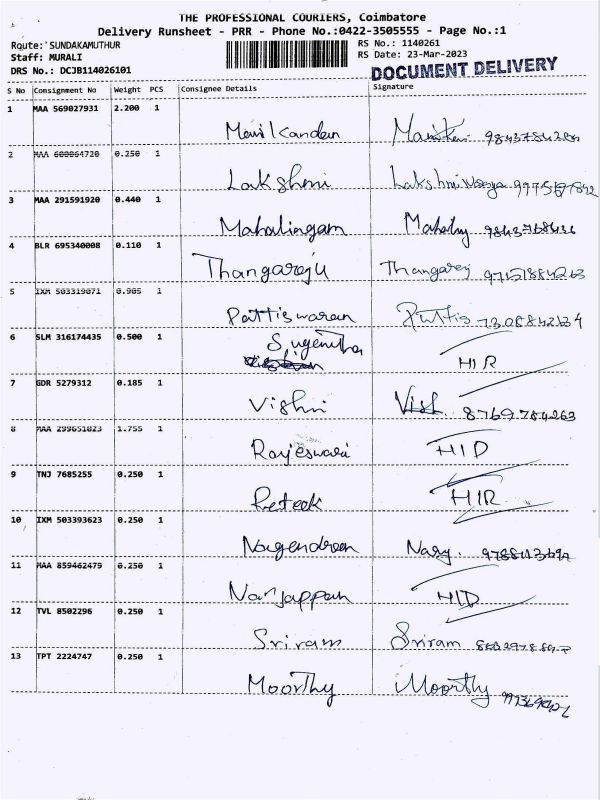 THE PROFESSIONAL COURIERS, Coimbatore
Delivery Runsheet - PRR - Phone No.:0422-3505555 - Page No.:1
Route: SUNDAKAMUTHUR
Staff: MURALI
DRS No.: DCJB114026101
RS No.: 1140261
RS Date: 23-Mar-2023
DOCUMENT DELIVERY
S No Consignment No Weight PCS Consignee Details Signature
1 MAA 569027931 2.200 1
Manikandan
2 MAA 600064720 0.250 1
Lakshmi
3 MAA 291591920 0.440 1
Mahalingam
4 BLR 695340008 0.110 1
Thangaraju Thangaraj
5 IXM 503319071 0.905 1
Pattiswaran
6 SLM 316174435 0.500 1
Sugentha HIR
7 GDR 5279312 0.185 1
Vishni 8769784263
8 MAA 299651823 1.755 1
Rajeswari HID
9 TNJ 7685255 0.250 1
HIR
10 IXM 503393623 0.250 1
Nagendran
11 MAA 859462479 0.250 1
Nanjappan HID
12 TVL 8502296 0.250 1
Sriram Sriram
13 TPT 2224747 0.250 1
Moorthy Moorthy